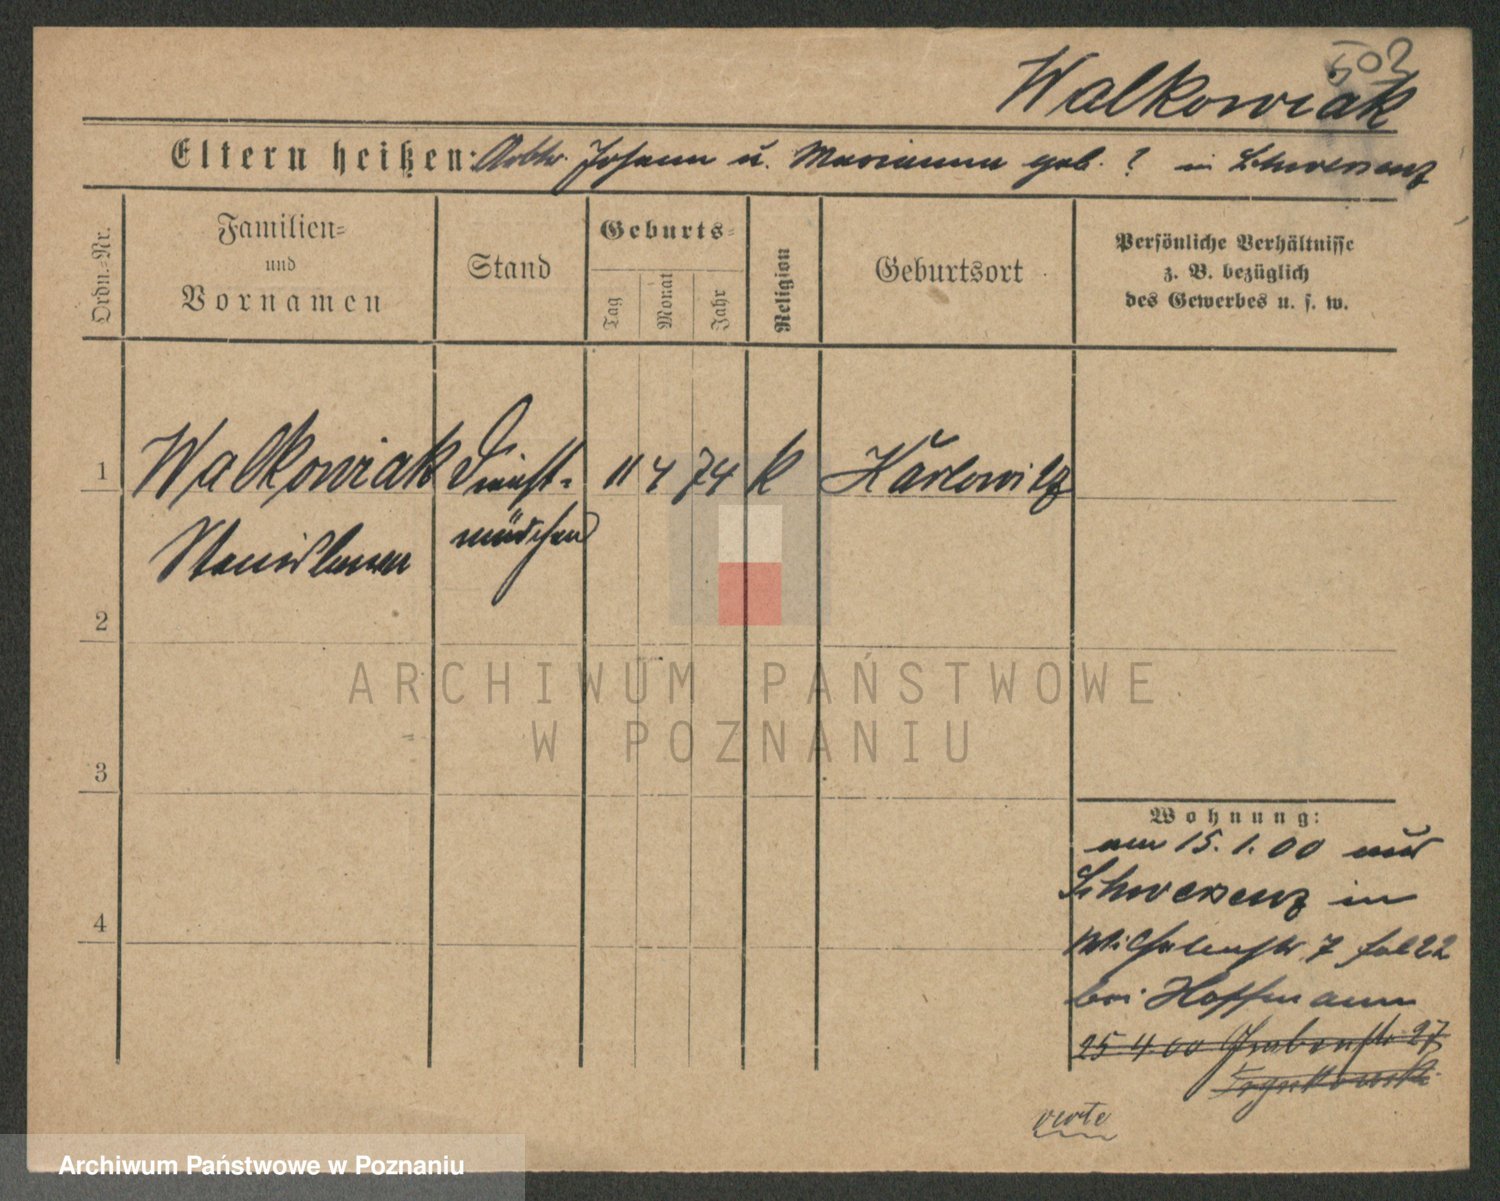 502
Walkowiak
Eltern heißen: Arbtr. Johann u. Marianna geb. ? in Schwersenz
Ordn.-Nr.
Familien-
und
Vornamen
Stand
Geburts-
Tag
Monat
Jahr
Religion
Geburtsort
Persönliche Verhältnisse
z. B. bezüglich
des Gewerbes u. s. w.
1
Walkowiak Dienst- 11 4 74 k Karlowitz
Stanislawa mädchen
2
ARCHIWUM PAŃSTWOWE
W POZNANIU
3
Wohnung:
am 15.1.00 aus
Schwersenz in
4
Wilhelmstr. 7 fol 22
bei Hoffmann
25.4.00 Grabenstr. 27
verte
Archiwum Państwowe w Poznaniu